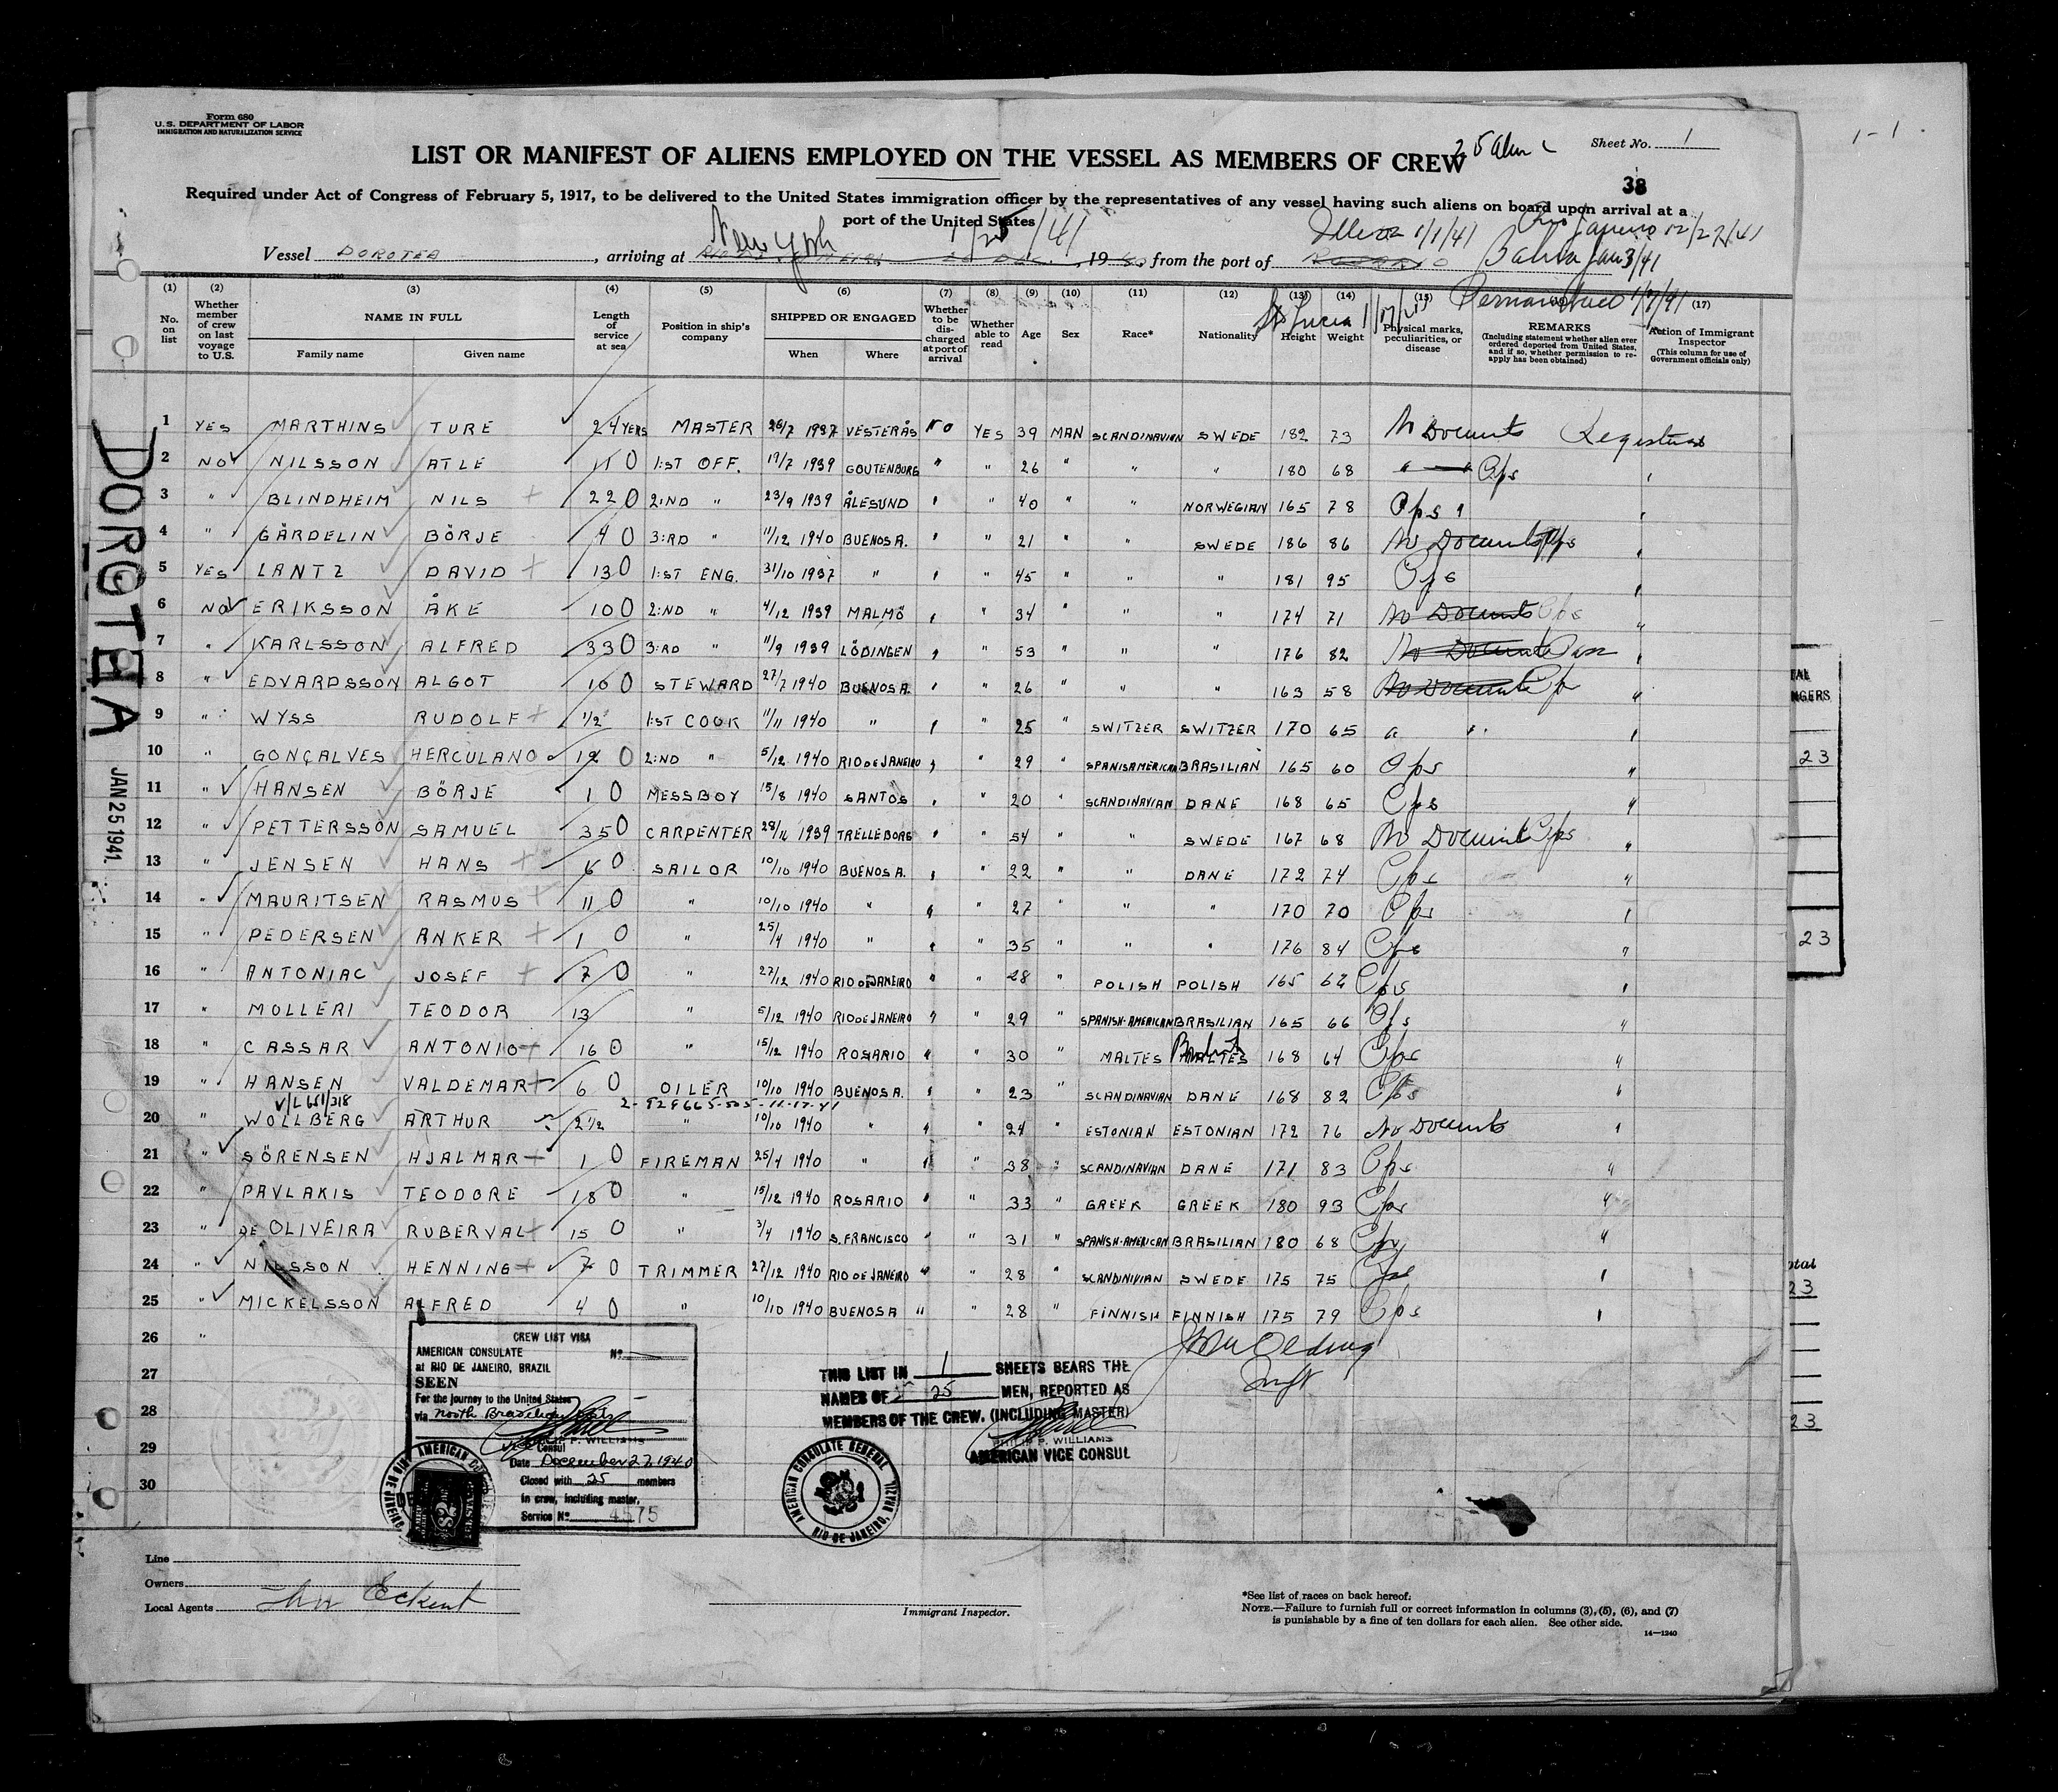 Form 680
U. S. DEPARTMENT OF LABOR
IMMIGRATION AND NATURALIZATION SERVICE
Sheet No. 1
1-1
LIST OR MANIFEST OF ALIENS EMPLOYED ON THE VESSEL AS MEMBERS OF CREW
38
Required under Act of Congress of February 5, 1917, to be delivered to the United States immigration officer by the representatives of any vessel having such aliens on board upon arrival at a
port of the United States
New York 1/25/41
1/1/41
Bahia Jan 3/41
Vessel DOROTEA, arriving at , 19 , from the port of
Pernambuco 1/7/41
St Lucia 1/17/41
(1) (2) (3) (4) (5) (6) (7) (8) (9) (10) (11) (12) (13) (14) (15) (17)
No. on list
Whether member of crew on last voyage to U.S.
NAME IN FULL
Family name Given name
Length of service at sea
Position in ship's company
SHIPPED OR ENGAGED
When Where
Whether to be discharged at port of arrival
Whether able to read
Age
Sex
Race*
Nationality
Height
Weight
Physical marks, peculiarities, or disease
REMARKS
(Including statement whether alien ever ordered deported from United States, and if so, whether permission to reapply has been obtained)
Action of Immigrant Inspector
(This column for use of Government officials only)
1 YES MARTHINS TURE 24 YERS MASTER 26/7 1937 VESTERÅS NO YES 39 MAN SCANDINAVIAN SWEDE 182 73 No Documents
2 NO NILSSON ATLE 11 0 1:ST OFF. 19/7 1939 GOUTENBURG " " 26 " " " 180 68 Ops
3 " BLINDHEIM NILS 22 0 2:ND " 23/9 1939 ÅLESUND " " 40 " " NORWEGIAN 165 78 Ops
4 " GÄRDELIN BÖRJE 4 0 3:RD " 11/12 1940 BUENOS A. " " 21 " " SWEDE 186 86 No Documents Ops
5 YES LANTZ DAVID 13 0 1:ST ENG. 31/10 1937 " " " 45 " " " 181 95 Ops
6 NO ERIKSSON ÅKE 10 0 2:ND " 4/12 1939 MALMÖ " " 34 " " " 174 71 No Documents Ops
7 " KARLSSON ALFRED 33 0 3:RD " 11/9 1939 LÖDINGEN " " 53 " " " 176 82 No Documents
8 " EDVARDSSON ALGOT 10 0 STEWARD 27/7 1940 BUENOS A. " " 26 " " " 163 58 No Documents
9 " WYSS RUDOLF 1/2 1:ST COOK 11/11 1940 " " " 25 " SWITZER SWITZER 170 65
10 " GONÇALVES HERCULANO 12 0 2:ND " 5/12 1940 RIO DE JANEIRO " " 29 " SPANISAMERICAN BRASILIAN 165 60 Ops
11 " HANSEN BÖRJE 1 0 MESSBOY 15/8 1940 SANTOS " " 20 " SCANDINAVIAN DANE 168 65 Ops
12 " PETTERSSON SAMUEL 35 0 CARPENTER 28/11 1939 TRELLEBORG " " 54 " " SWEDE 167 68 No Documents Ops
13 " JENSEN HANS 6 0 SAILOR 10/10 1940 BUENOS A. " " 22 " " DANE 172 74 Ops
14 " MAURITSEN RASMUS 11 0 " 10/10 1940 " " " 27 " " " 170 70 Ops
15 " PEDERSEN ANKER 1 0 " 25/4 1940 " " " 35 " " " 176 84 Ops
16 " ANTONIAC JOSEF 7 0 " 27/12 1940 RIO DE JANEIRO " " 28 " POLISH POLISH 165 62 Ops
17 " MOLLERI TEODOR 13 " 5/12 1940 RIO DE JANEIRO " " 29 " SPANISH-AMERICAN BRASILIAN 165 66 Ops
18 " CASSAR ANTONIO 16 0 " 15/12 1940 ROSARIO " " 30 " MALTES MALTES 168 64 Ops
19 " HANSEN VALDEMAR 6 0 OILER 10/10 1940 BUENOS A. " " 23 " SCANDINAVIAN DANE 168 82 Ops
V/L 651/318
20 " WOLLBERG ARTHUR 2 1/2 " 10/10 1940 " " " 24 " ESTONIAN ESTONIAN 172 76 No Documents
21 " SÖRENSEN HJALMAR 1 0 FIREMAN 25/4 1940 " " " 38 " SCANDINAVIAN DANE 171 83 Ops
22 " PAVLAKIS TEODORE 18 0 " 15/12 1940 ROSARIO " " 33 " GREEK GREEK 180 93 Ops
23 " DE OLIVEIRA RUBERVAL 15 0 " 3/4 1940 S. FRANCISCO " " 31 " SPANISH-AMERICAN BRASILIAN 180 68 Ops
24 " NILSSON HENNING 7 0 TRIMMER 27/12 1940 RIO DE JANEIRO " " 28 " SCANDINIVIAN SWEDE 175 75
25 " MICKELSSON ALFRED 4 0 " 10/10 1940 BUENOS A " " 28 " FINNISH FINNISH 175 79 Ops
26 "
27
28
29
30
DOROTEA
JAN 25 1941
CREW LIST VISA
AMERICAN CONSULATE No.
at RIO DE JANEIRO, BRAZIL
SEEN
For the journey to the United States
via North Brazilian
P. WILLIAMS
Consul
Date December 27, 1940
Closed with 25 members
in crew, including master.
Service No. 4575
THIS LIST IN 1 SHEETS BEARS THE
NAMES OF 25 MEN, REPORTED AS
MEMBERS OF THE CREW. (INCLUDING MASTER)
PHILIP P. WILLIAMS
AMERICAN VICE CONSUL
AMERICAN CONSULATE GENERAL
RIO DE JANEIRO, BRAZIL
Line
Owners
Local Agents Eckert
Immigrant Inspector.
*See list of races on back hereof.
NOTE.—Failure to furnish full or correct information in columns (3), (5), (6), and (7)
is punishable by a fine of ten dollars for each alien. See other side.
14—1240
23
23
23
23